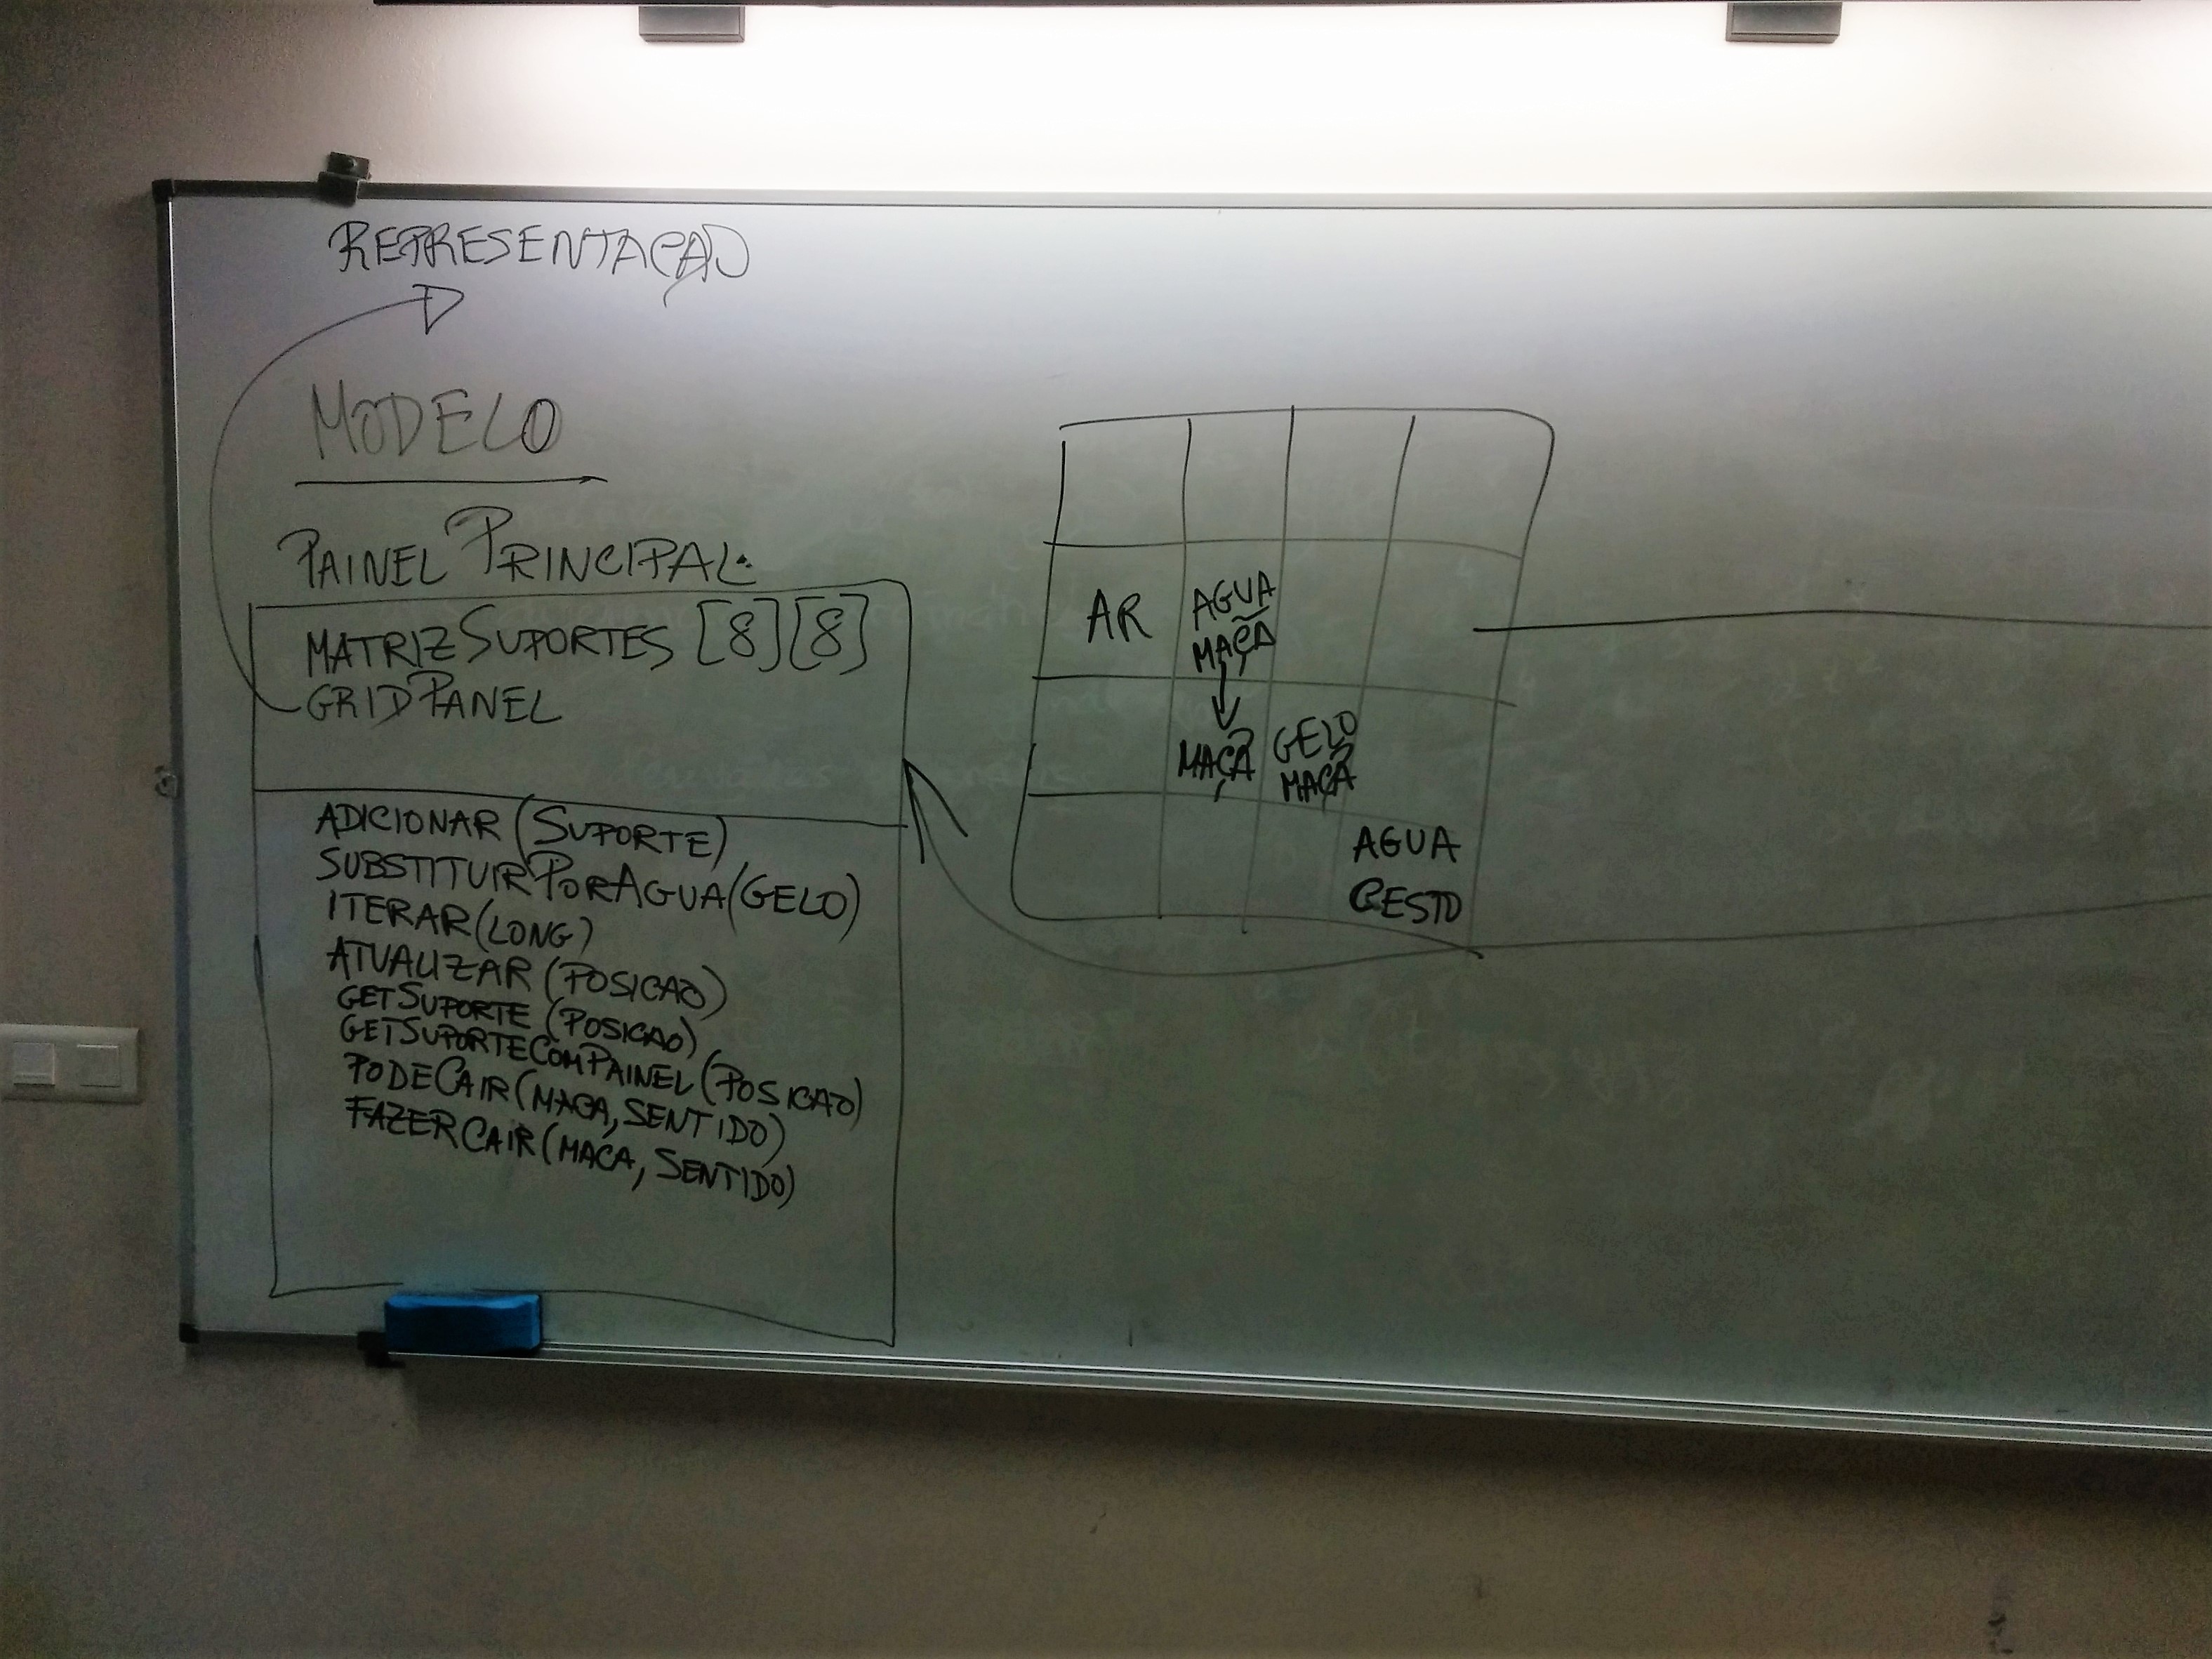 REPRESENTAÇÃO
MODELO
PAINEL PRINCIPAL
MATRIZSUPORTES [8][8]
GRIDPANEL
ADICIONAR (SUPORTE)
SUBSTITUIRPORAGUA(GELO)
ITERAR(LONG)
ATUALIZAR (POSICAO)
GETSUPORTE (POSICAO)
GETSUPORTECOMPAINEL (POSICAO)
PODECAIR(MACA, SENTIDO)
FAZERCAIR(MACA, SENTIDO)
AR
AGUA
MAÇÃ
MAÇÃ
GELO
MAÇÃ
AGUA
CESTO